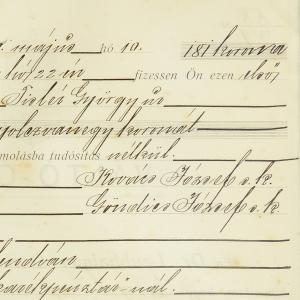 május hó 10. 181 korona
hó 22 én fizessen Ön ezen első
György úr
nyolczvanegy koronát
számolásba tudósítás nélkül.
Kovács József s. k.
Göndics József s. k.
lendván
takarékpénztár-nál.